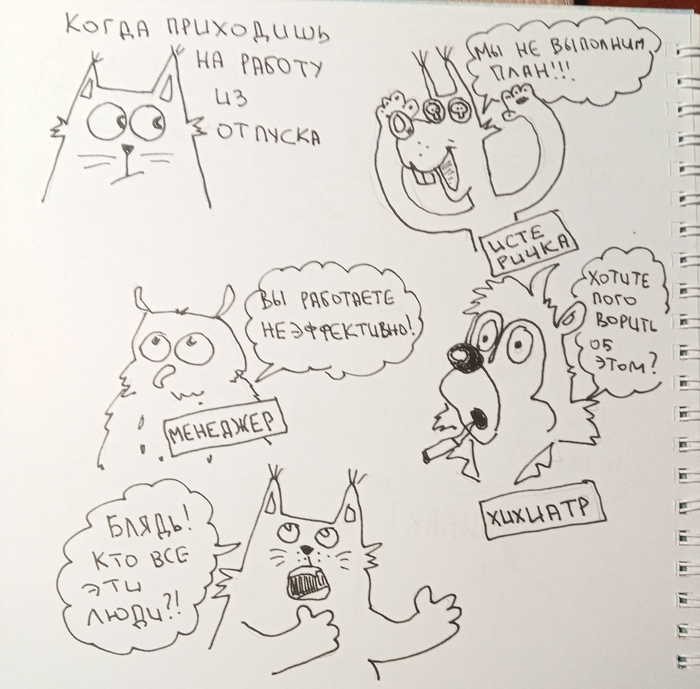 КОГДА ПРИХОДИШЬ
НА РАБОТУ
ИЗ
ОТПУСКА
МЫ НЕ ВЫПОЛНИМ
ПЛАН!!!
ИСТЕ
РИЧКА
ВЫ РАБОТАЕТЕ
НЕЭФФЕКТИВНО!
МЕНЕДЖЕР
ХОТИТЕ
ПОГО
ВОРИТЬ
ОБ
ЭТОМ?
ХИХИАТР
БЛЯДЬ!
КТО ВСЕ
ЭТИ
ЛЮДИ?!